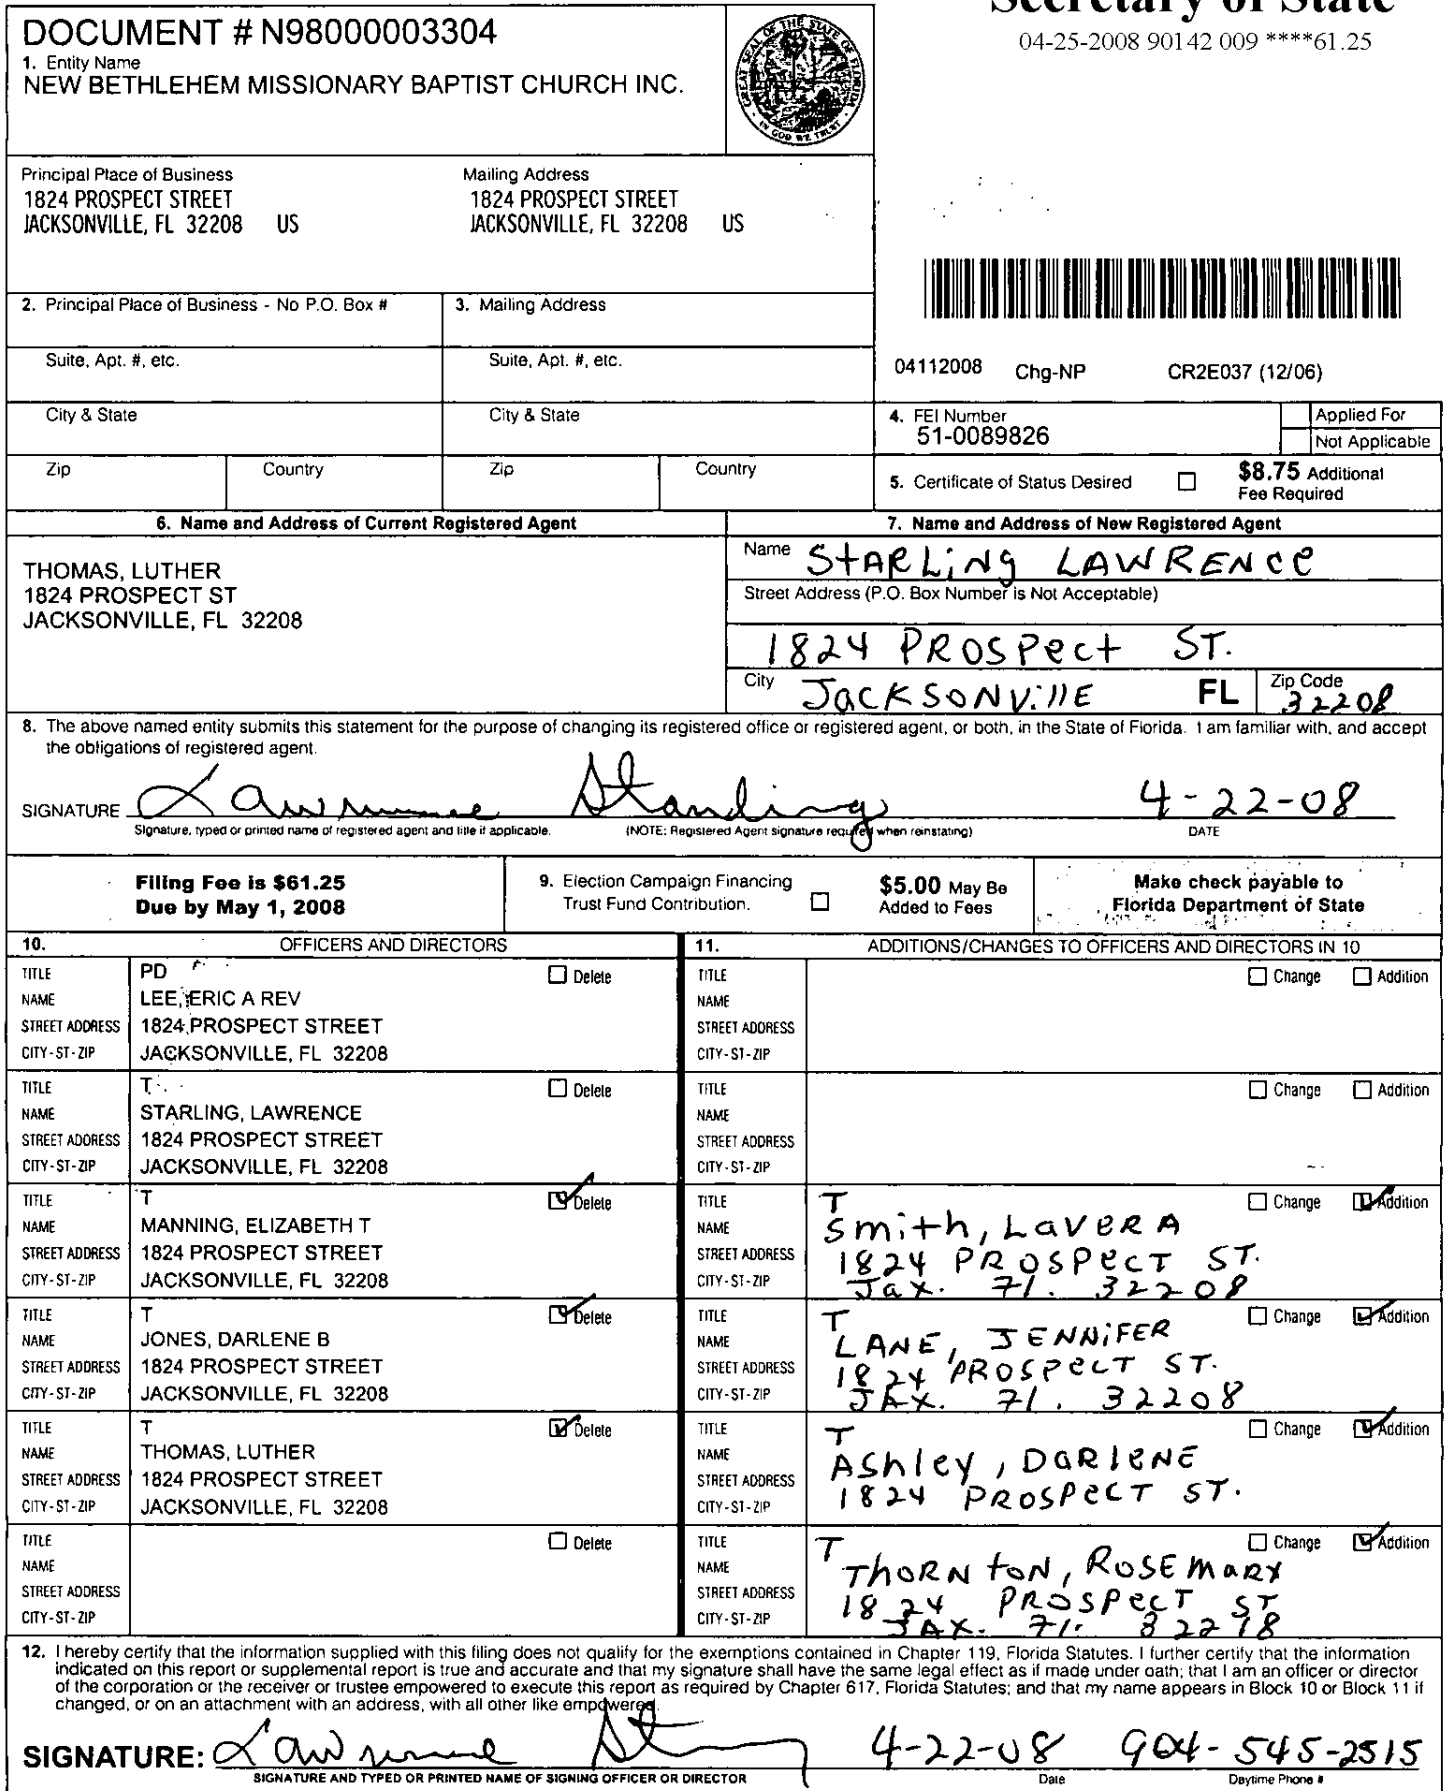 Secretary of State
04-25-2008 90142 009 ****61.25
DOCUMENT # N98000003304
1. Entity Name
NEW BETHLEHEM MISSIONARY BAPTIST CHURCH INC.
GREAT SEAL OF THE STATE OF FLORIDA
IN GOD WE TRUST
Principal Place of Business
1824 PROSPECT STREET
JACKSONVILLE, FL 32208 US
Mailing Address
1824 PROSPECT STREET
JACKSONVILLE, FL 32208 US
2. Principal Place of Business - No P.O. Box #
3. Mailing Address
Suite, Apt. #, etc.
Suite, Apt. #, etc.
04112008 Chg-NP CR2E037 (12/06)
City & State
City & State
4. FEI Number
51-0089826
Applied For
Not Applicable
Zip
Country
Zip
Country
5. Certificate of Status Desired
$8.75 Additional
Fee Required
6. Name and Address of Current Registered Agent
THOMAS, LUTHER
1824 PROSPECT ST
JACKSONVILLE, FL 32208
7. Name and Address of New Registered Agent
Name StARLiNg LAWRENCe
Street Address (P.O. Box Number is Not Acceptable)
1824 PROSPect ST.
City JaCKSONVillE FL Zip Code
32208
8. The above named entity submits this statement for the purpose of changing its registered office or registered agent, or both, in the State of Florida. I am familiar with, and accept
the obligations of registered agent.
SIGNATURE Lawrence Starling 4-22-08
Signature, typed or printed name of registered agent and title if applicable. (NOTE: Registered Agent signature required when reinstating) DATE
Filing Fee is $61.25
Due by May 1, 2008
9. Election Campaign Financing
Trust Fund Contribution.
$5.00 May Be
Added to Fees
Make check payable to
Florida Department of State
10. OFFICERS AND DIRECTORS
11. ADDITIONS/CHANGES TO OFFICERS AND DIRECTORS IN 10
TITLE PD Delete
NAME LEE, ERIC A REV
STREET ADDRESS 1824 PROSPECT STREET
CITY-ST-ZIP JACKSONVILLE, FL 32208
TITLE Change Addition
NAME
STREET ADDRESS
CITY-ST-ZIP
TITLE T Delete
NAME STARLING, LAWRENCE
STREET ADDRESS 1824 PROSPECT STREET
CITY-ST-ZIP JACKSONVILLE, FL 32208
TITLE Change Addition
NAME
STREET ADDRESS
CITY-ST-ZIP
TITLE T Delete
NAME MANNING, ELIZABETH T
STREET ADDRESS 1824 PROSPECT STREET
CITY-ST-ZIP JACKSONVILLE, FL 32208
TITLE T Change Addition
NAME Smith, LaVERA
STREET ADDRESS 1824 PROSPECT ST.
CITY-ST-ZIP Jax. Fl. 32208
TITLE T Delete
NAME JONES, DARLENE B
STREET ADDRESS 1824 PROSPECT STREET
CITY-ST-ZIP JACKSONVILLE, FL 32208
TITLE T Change Addition
NAME LANE, JENNiFER
STREET ADDRESS 1824 PROSPECT ST.
CITY-ST-ZIP JAX. Fl. 32208
TITLE T Delete
NAME THOMAS, LUTHER
STREET ADDRESS 1824 PROSPECT STREET
CITY-ST-ZIP JACKSONVILLE, FL 32208
TITLE T Change Addition
NAME AShley, DaRlENE
STREET ADDRESS 1824 PROSPECT ST.
CITY-ST-ZIP
TITLE Delete
NAME
STREET ADDRESS
CITY-ST-ZIP
TITLE T Change Addition
NAME ThORNtoN, ROSEMARY
STREET ADDRESS 1824 PROSPECT ST
CITY-ST-ZIP JAX. Fl. 32218
12. I hereby certify that the information supplied with this filing does not qualify for the exemptions contained in Chapter 119, Florida Statutes. I further certify that the information
indicated on this report or supplemental report is true and accurate and that my signature shall have the same legal effect as if made under oath; that I am an officer or director
of the corporation or the receiver or trustee empowered to execute this report as required by Chapter 617, Florida Statutes; and that my name appears in Block 10 or Block 11 if
changed, or on an attachment with an address, with all other like empowered.
SIGNATURE: Lawrence 4-22-08 904-545-2515
SIGNATURE AND TYPED OR PRINTED NAME OF SIGNING OFFICER OR DIRECTOR Date Daytime Phone #